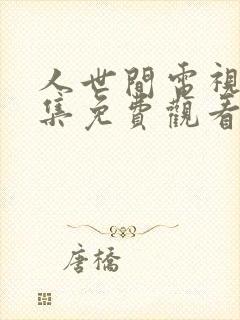 人世間電視
集免費觀看
唐橋